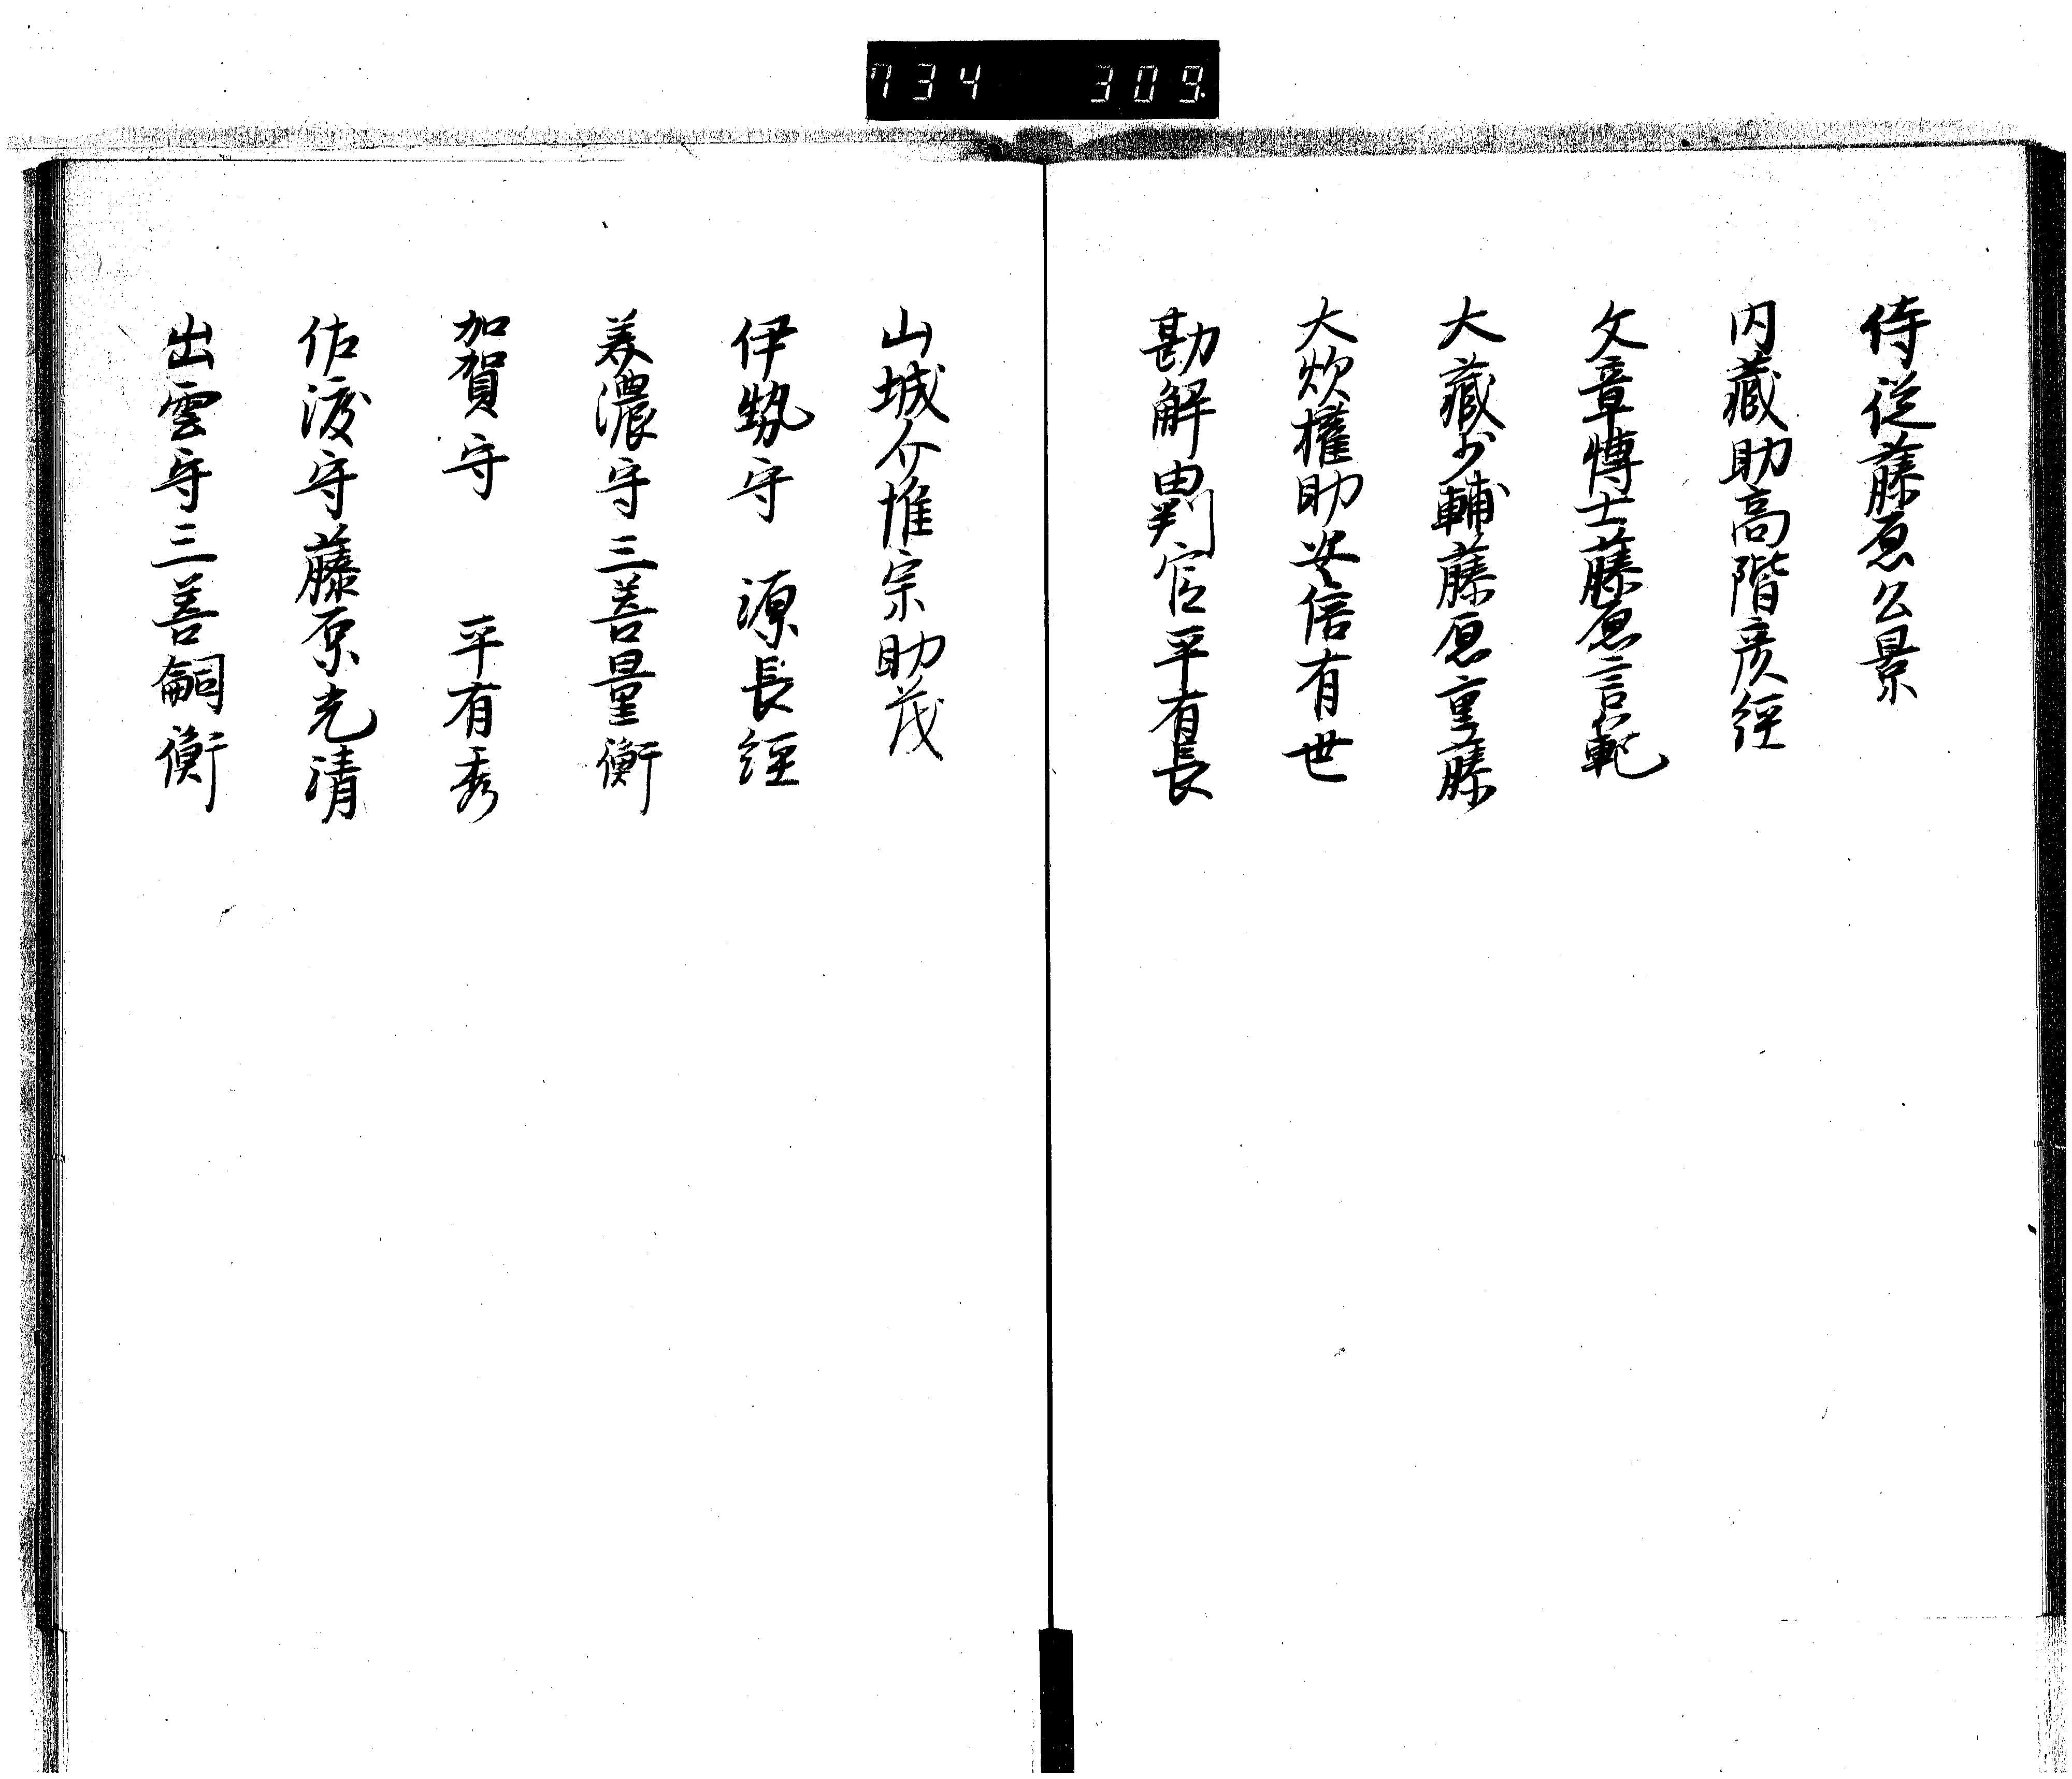 734 309
侍従藤原公景
内蔵助高階彦経
文章博士藤原言範
大蔵少輔藤原重藤
大炊権助安倍有世
勘解由判官平有長
山城介惟宗助茂
伊勢守 源長経
美濃守三善量衡
加賀守 平有秀
佐渡守藤原光清
出雲守三善嗣衡